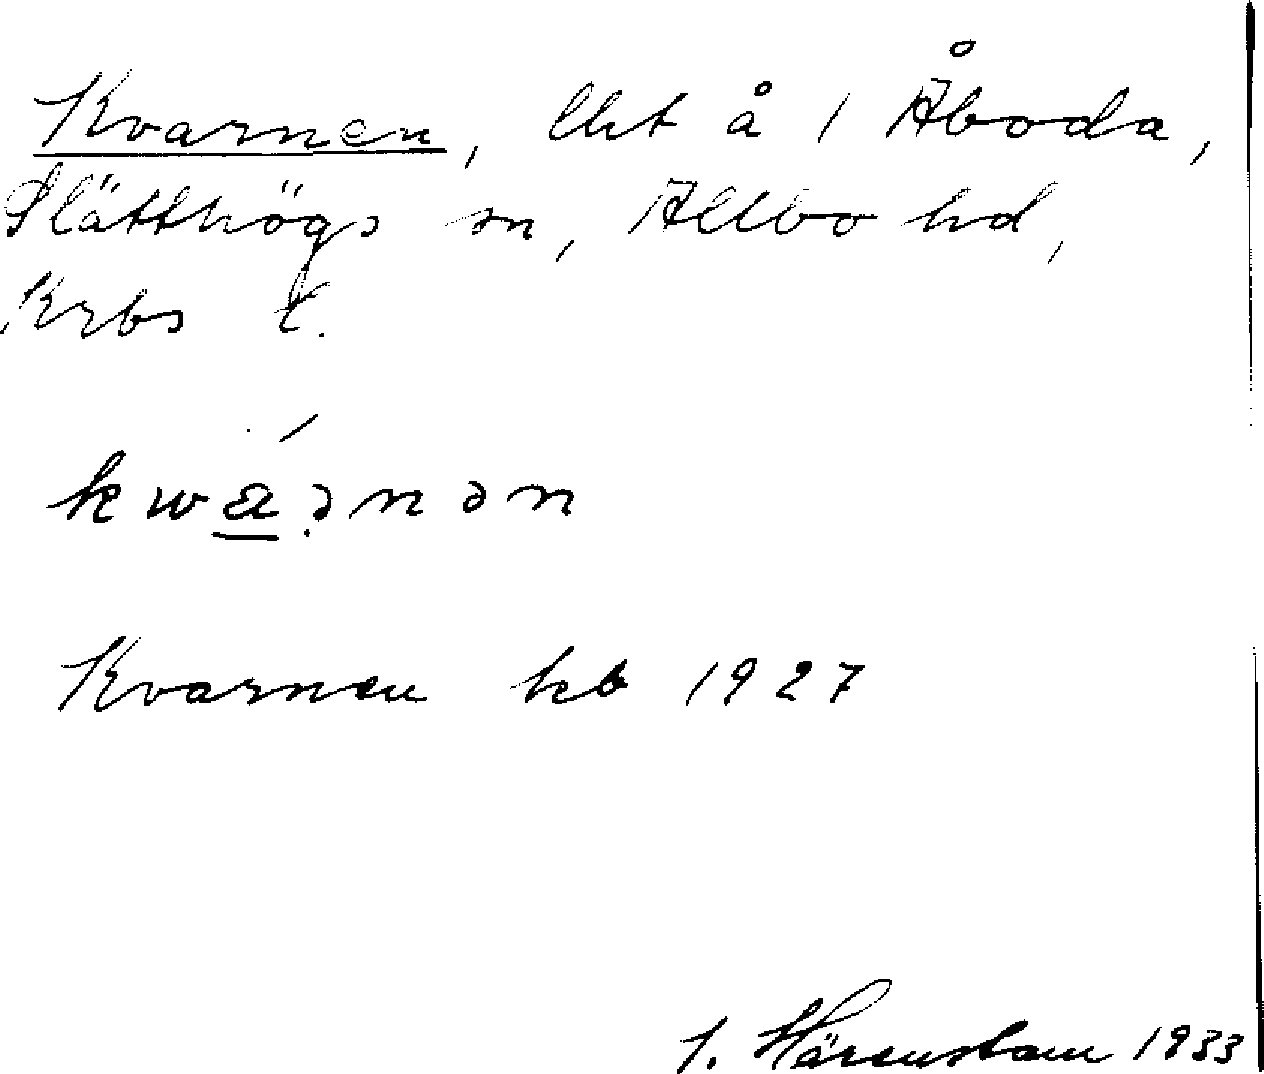 Kvarnen, lht å 1 Åboda,
Slätthögs sn, Allbo hd,
Krbs l.
kwá̱ə̣nən
Kvarnen kb 1927
1. Härenstam 1933